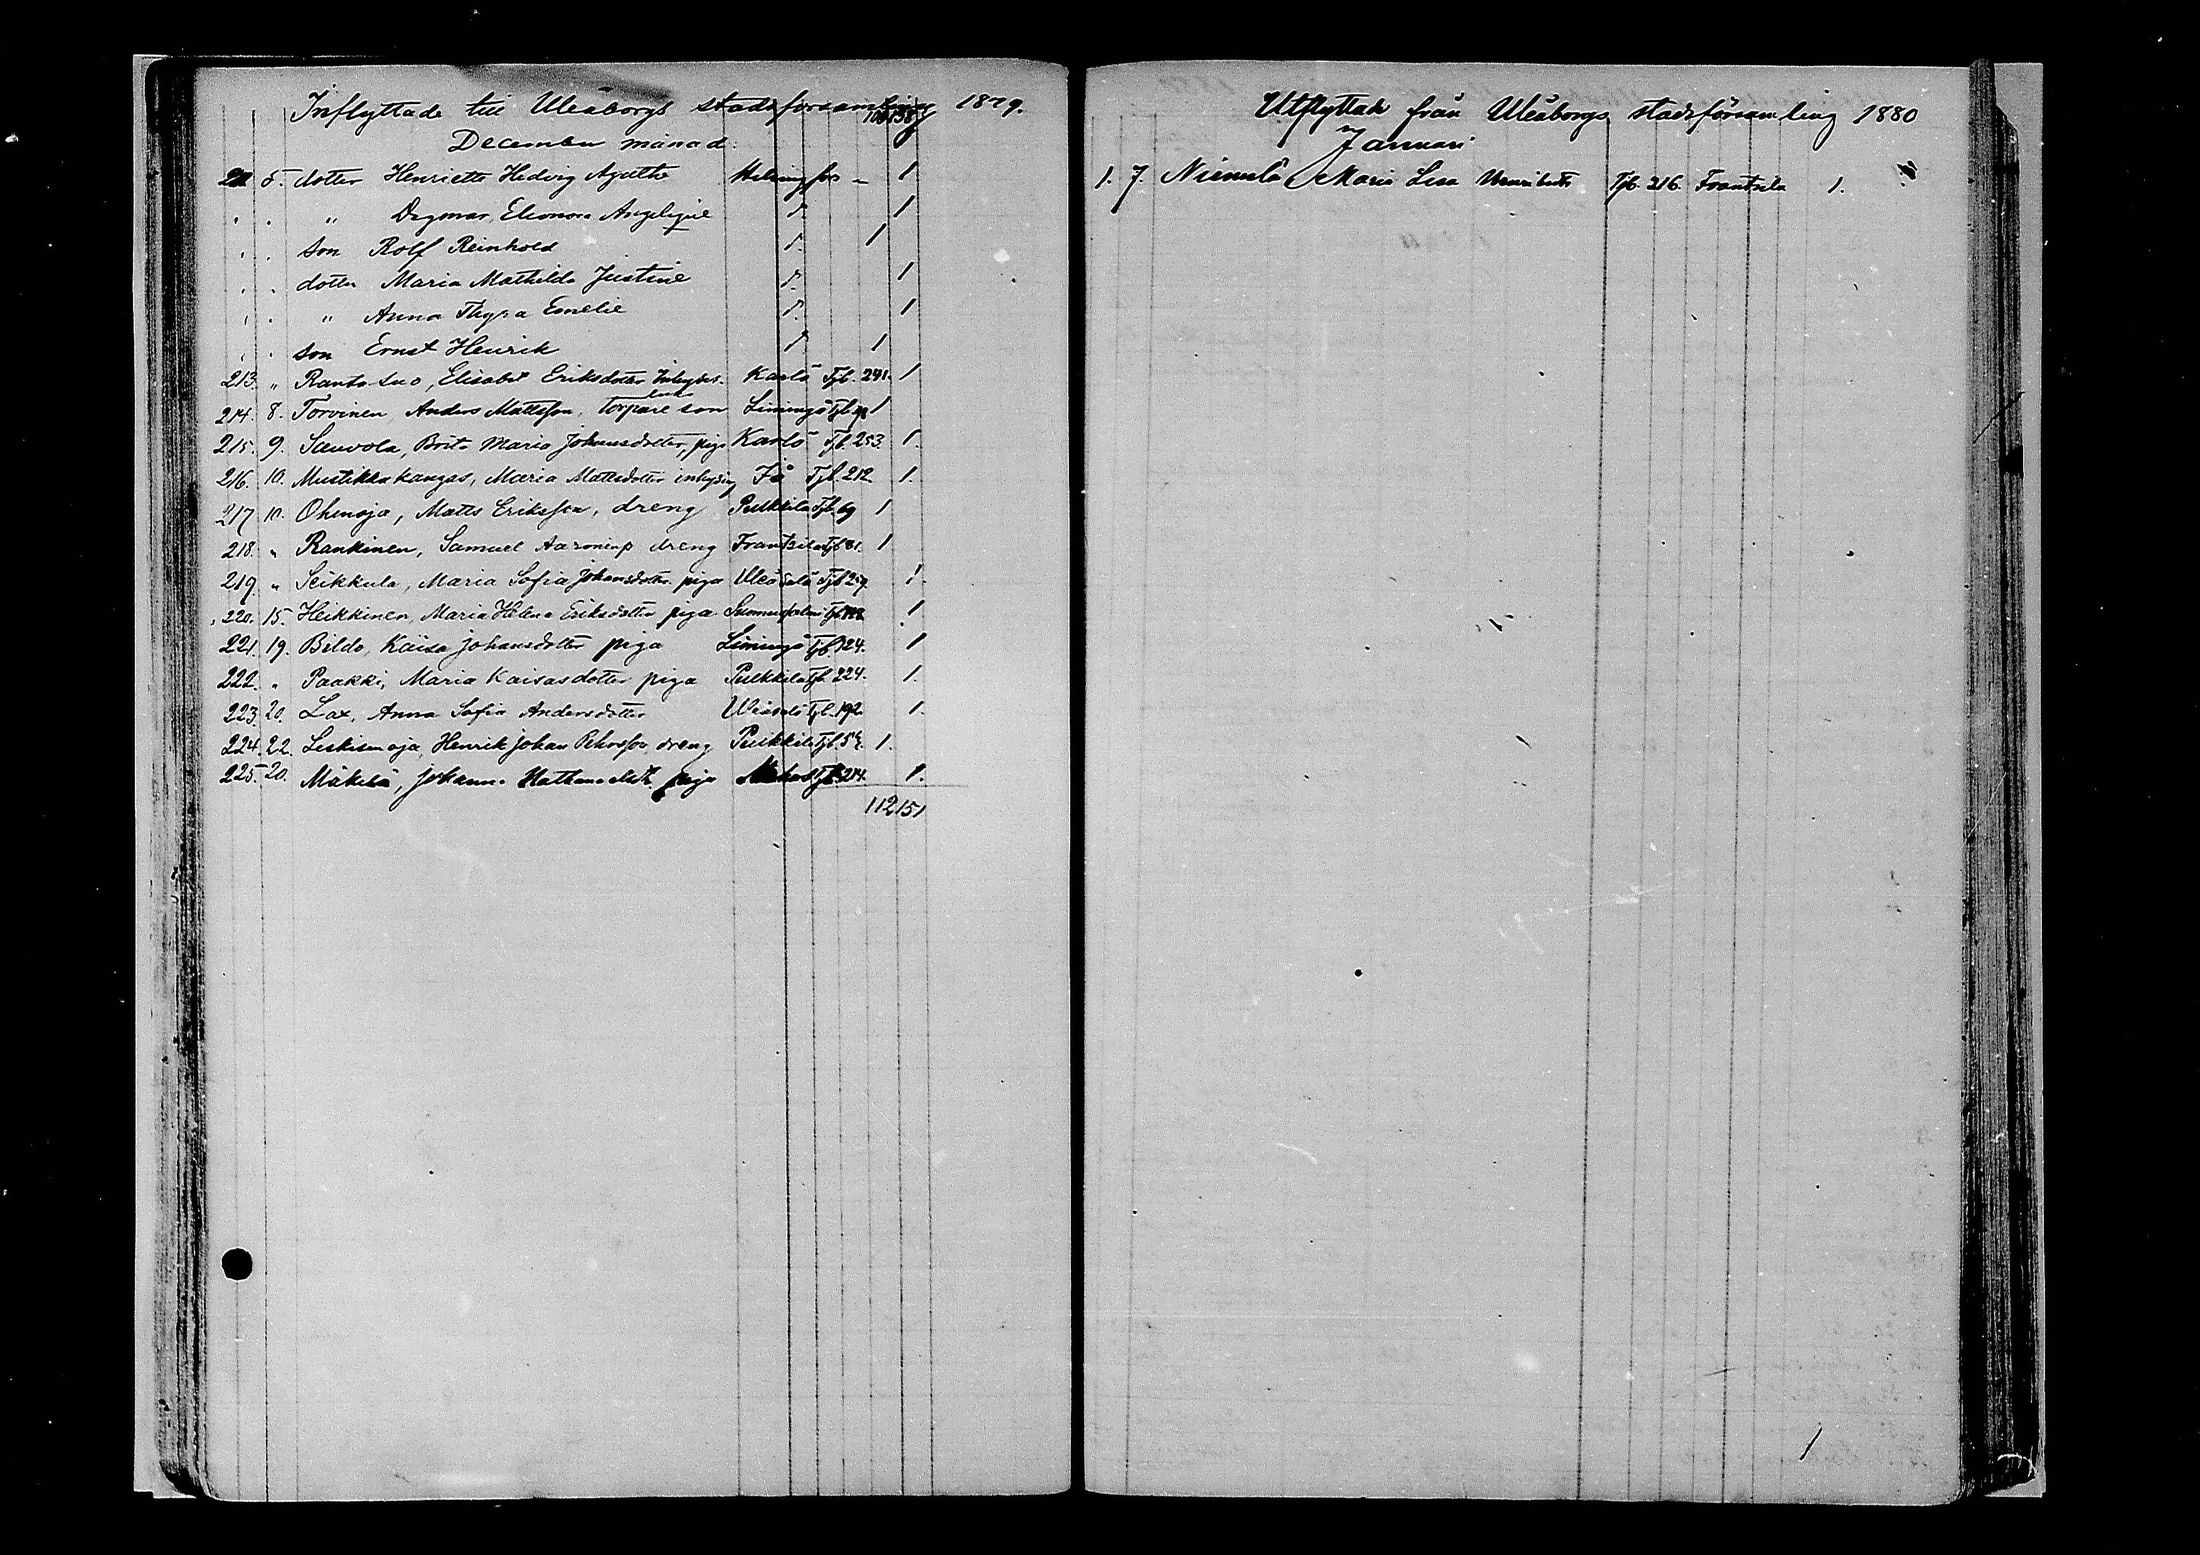 Inflyttade till Uleåborgs stadsförsamling 1879.
December månad. 106 138
211 5. dotter Henriette Hedvig Agathe Helsingfors - 1
" Dagmar Eleonora Angelique d:o 1
son Rolf Reinhold d:o 1
dotter Maria Mathilda Justine d:o 1
" Anna Thyra Emelie d:o 1
son Ernst Henrik d:o 1
213. " Ranta-Suo, Elisabet Eriksdotter Karlö Tjb. 241. 1
214. 8. Torvinen Anders Mattsson, torpare son Limingo Tjb. 1
215. 9. Sauvola, Brita Maria Johansdotter, piga Karlö Tjb. 253. 1.
216. 10. Mustikkakangas, Maria Mattsdotter inhysing Ijå Tjb. 212. 1.
217 10. Ohenoja, Matts Eriksson, dreng Pulkkila Tjb. 69 1
218. " Rankinen, Samuel Aaronsp dreng Frantsila Tjb 81. 1
219. " Seikkula, Maria Sofia Johansdotter piga Uleåsalo Tjb 259. 1.
220. 15. Heikkinen, Maria Helena Eriksdotter piga Suomussalmi Tjb 1
221. 19. Bildo, Kaisa Johansdotter piga Limingo Tjb. 124. 1
222. " Paakki, Maria Kaisasdotter piga Pulkkila Tjb. 224. 1.
223. 20. Lax, Anna Sofia Andersdotter Uleåsalo Tjb. 192. 1.
224. 22. Leskismoja, Henrik Johan Pehrsson, dreng Pulkkila Tjb. 54. 1.
225. 20. Mäkelä, Johanna piga Muhos Tjb 214. 1.
112 151
Utflyttade från Uleåborgs stadsförsamling 1880
Januari
1. 7. Niemelä Maria Lisa Henriksdr Tjb. 216. Frantsila 1.
1